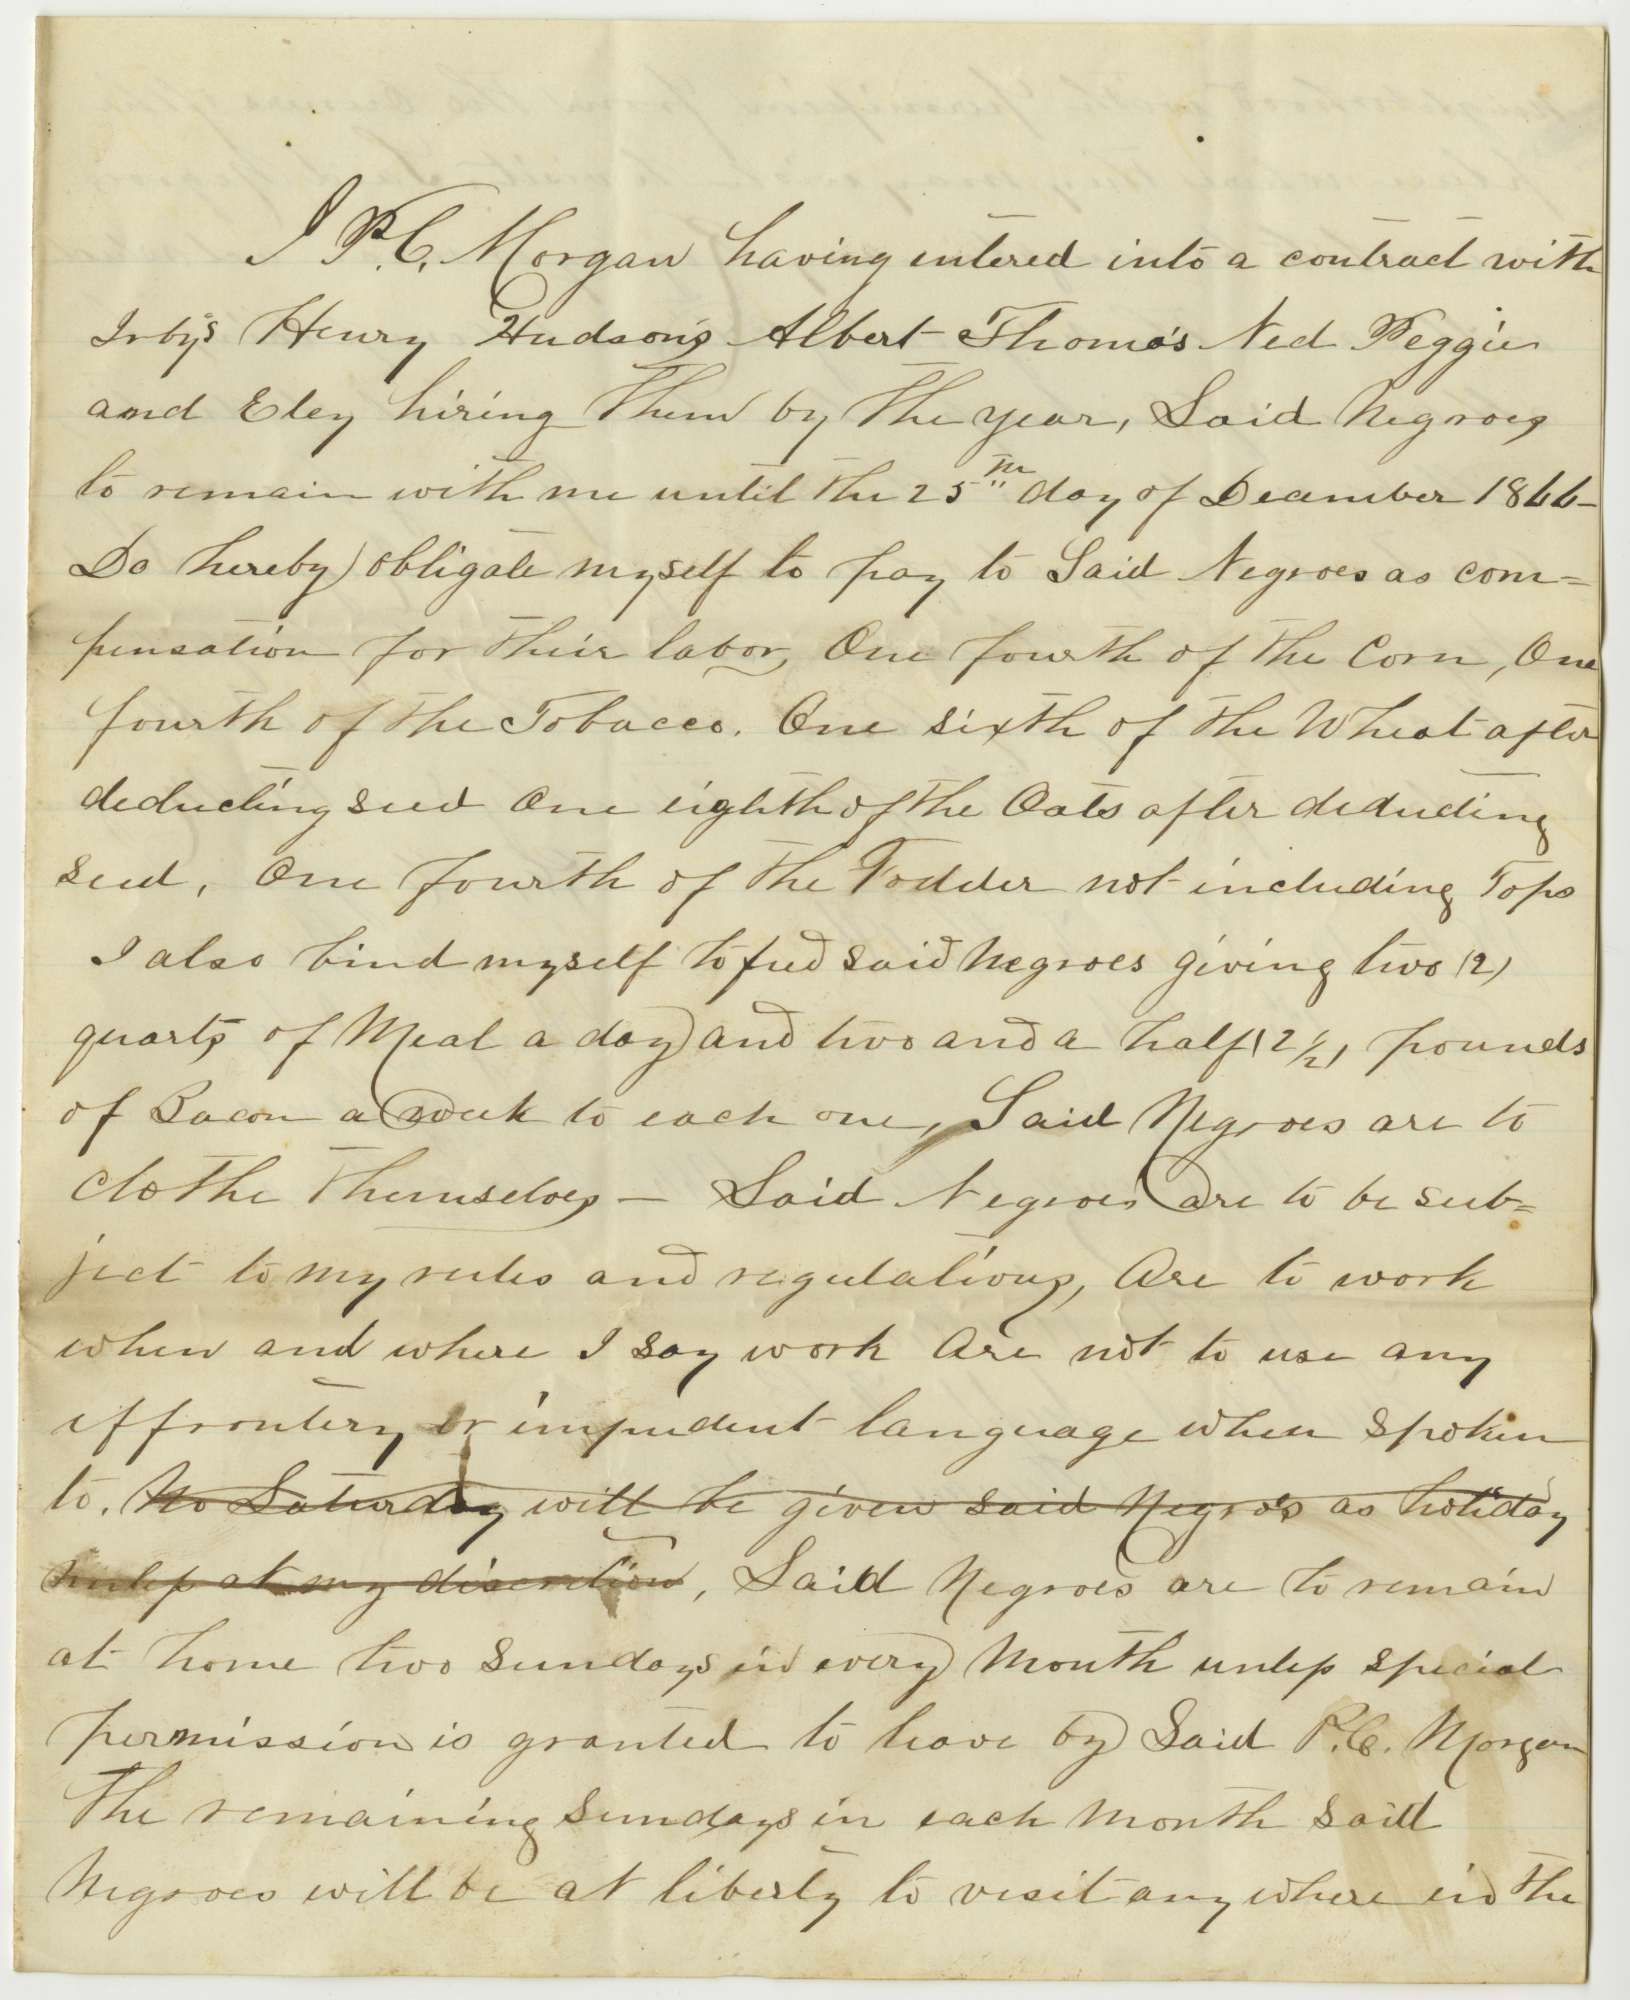 I P.C. Morgan having entered into a contract with
Irby's Henry Hudson's Albert Thomas's Ned Peggie
and Eley hiring Them by The year, Said Negroes
to remain with me until the 25th day of December 1866–
Do hereby obligate myself to pay to Said Negroes as com=
pensation for their labor, One fourth of The Corn, One
fourth of The Tobacco. One sixth of The Wheat after
deducting seed One eighth of The Oats after deducting
seed, One fourth of The Fodder not including Tops
I also bind myself to feed said Negroes giving two (2)
quarts of Meal a day and two and a half (2 1/2) pounds
of Bacon a week to each one, Said Negroes are to
clothe Themselves – Said Negroes are to be sub=
ject to my rules and regulations, Are to work
when and where I say work Are not to use any
effrontery or impudent language when spoken
to. No Saturday will be given said Negroes as holiday
unless at my discretion, Said Negroes are to remain
at home two Sundays in every Month unless special
permission is granted to leave by Said P.C. Morgan
The remaining Sundays in each Month said
Negroes will be at liberty to visit any where in The